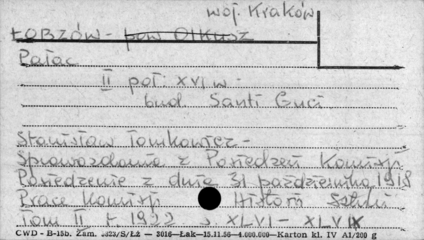 woj. Kraków
ŁOBZÓW - pow Olkusz
Pałac
II poł. XVI w.
bud. Santi Guci
Stanisław Tomkowicz -
Sprawozdanie z Posiedzeń Komisji
Posiedzenie z dnia 31 października 1918
Prace Komisji Histom Sztuki
Tom II r. 1922 s XLVI - XLVIX
CWD - B-15b. Zam. 5823/S/Łż - 3016-Łak-15.11.56-4.000.000-Karton kl. IV A1/200 g